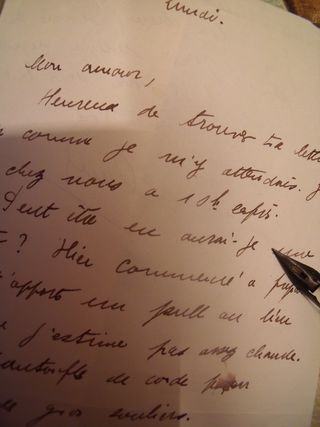 Lundi.
Mon amour,
Heureux de trouver ta lettre
comme je m'y attendais. J
chez nous à 10h esprs.
Peut être en aurai-je une
? Hier commencé à
apporte un pull au lieu
j'estime pas assez chaude.
pantoufle de corde pour
de gros souliers.